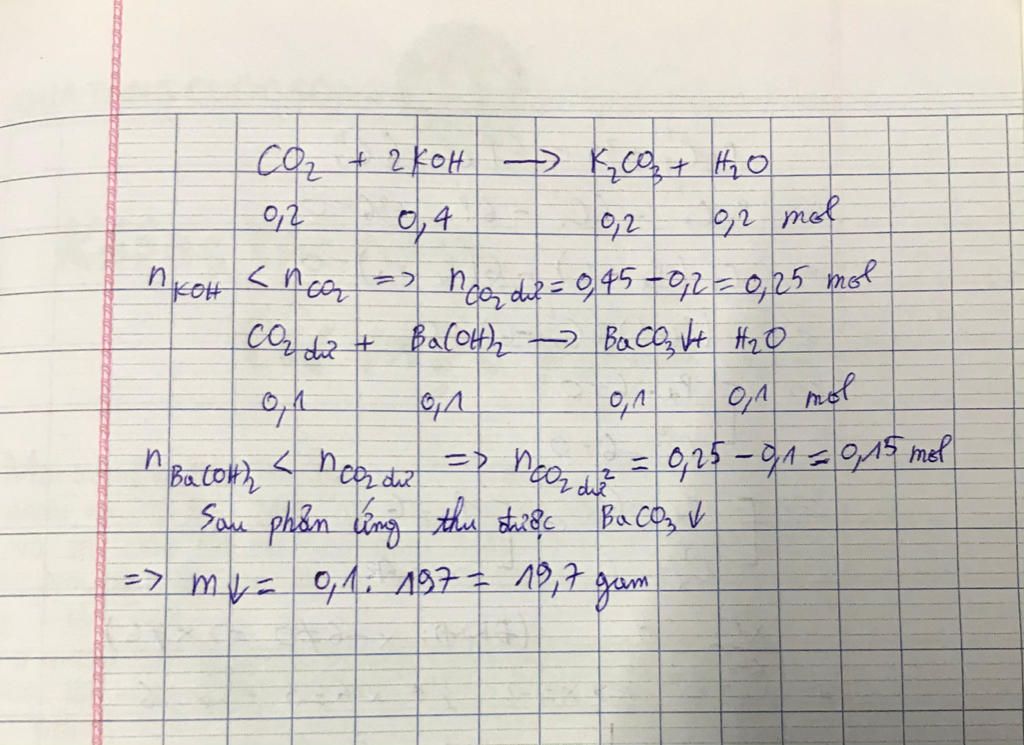 CO₂ + 2KOH → K₂CO₃ + H₂O
0,2 0,4 0,2 0,2 mol
n KOH < n CO₂ => n CO₂ dư = 0,45 - 0,2 = 0,25 mol
CO₂ dư + Ba(OH)₂ → BaCO₃↓ + H₂O
0,1 0,1 0,1 0,1 mol
n Ba(OH)₂ < n CO₂ dư => n CO₂ dư² = 0,25 - 0,1 = 0,15 mol
Sau phản ứng thu được BaCO₃↓
=> m↓ = 0,1 . 197 = 19,7 gam